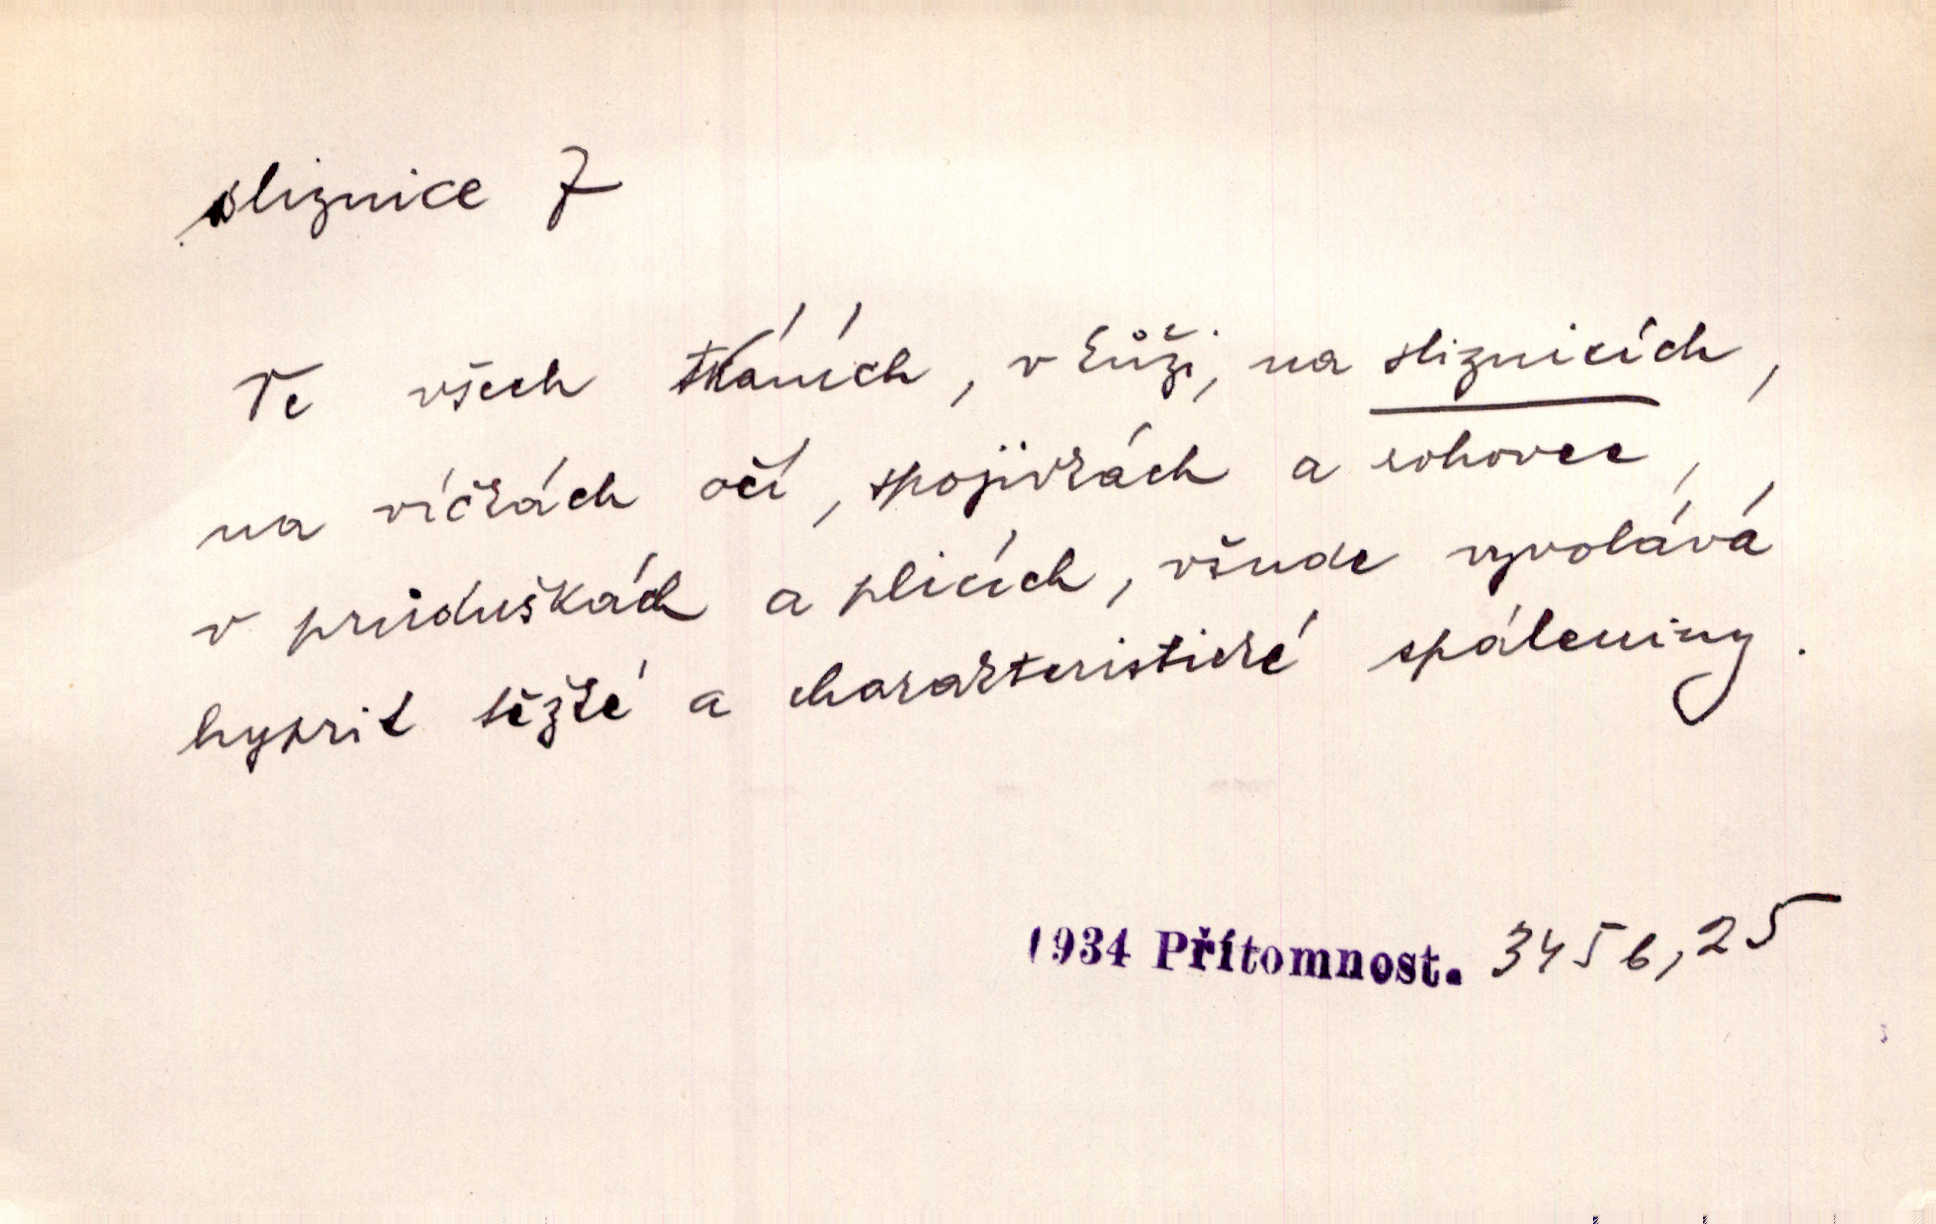 sliznice 7
Ve všech tkáních, v kůži, na sliznicích,
na víčkách očí, spojivkách a rohovce,
v průduškách a plicích, všude vyvolává
hyprit těžké a charakteristické spáleniny.
1934 Přítomnost. 3456,25